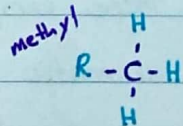 methyl
H
R - C - H
H